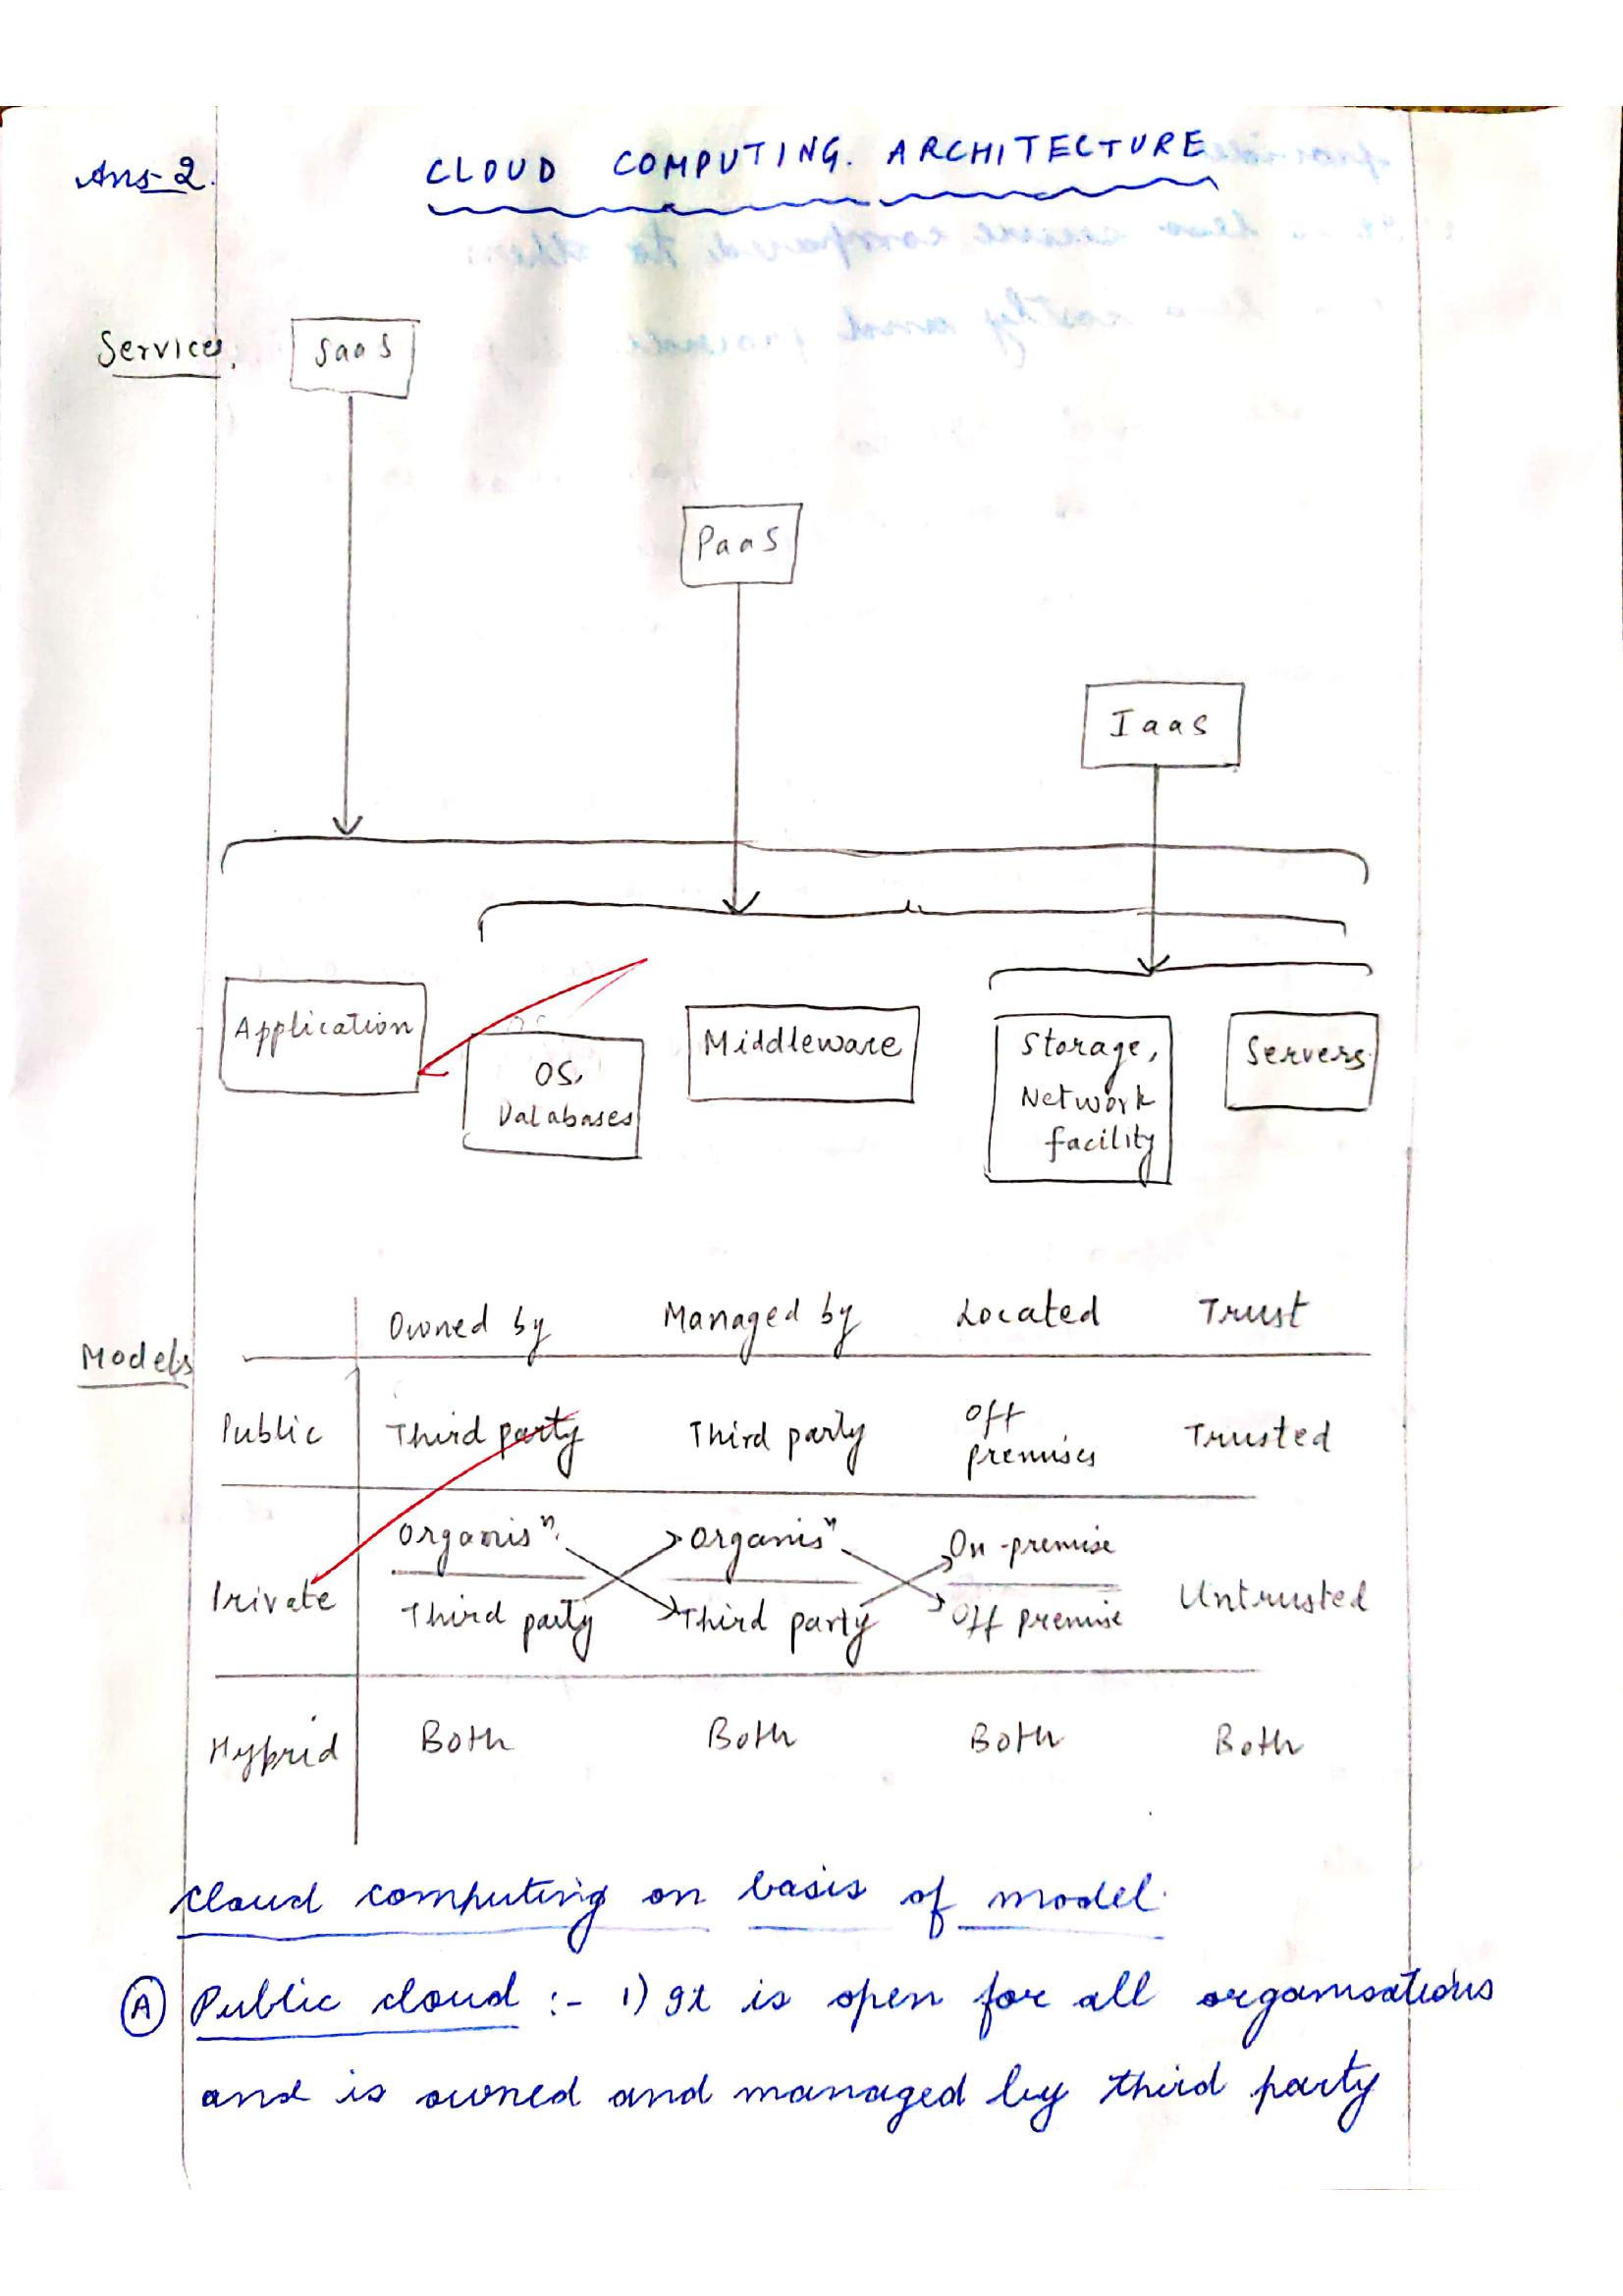 Ans-2.
CLOUD COMPUTING. ARCHITECTURE
Services.
SaaS
PaaS
IaaS
Application
OS,
Databases
Middleware
Storage,
Network
facility
Servers
Models
Owned by Managed by Located Trust
Public Third party Third party Off premises Trusted
Private
Organisⁿ. Organisⁿ On-premise
Third party Third party Off premise
Untrusted
Hybrid Both Both Both Both
Cloud computing on basis of model.
(A) Public cloud :- 1) It is open for all organisations
and is owned and managed by third party